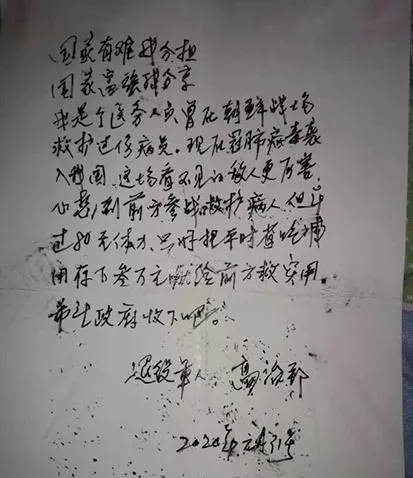 国家有难我分担
国家富强我分享
我是个医务人员曾在朝鲜战场
救护过伤病员。现在冠肺病毒袭
入我国。这场看不见的敌人更厉害。
心想到前方参战救护病人但年
过80无体力,只好把平时省吃俭
用存下叁万元 给前方救灾用。
希望政府收下吧。
退役军人 高治
2020年 元月31号